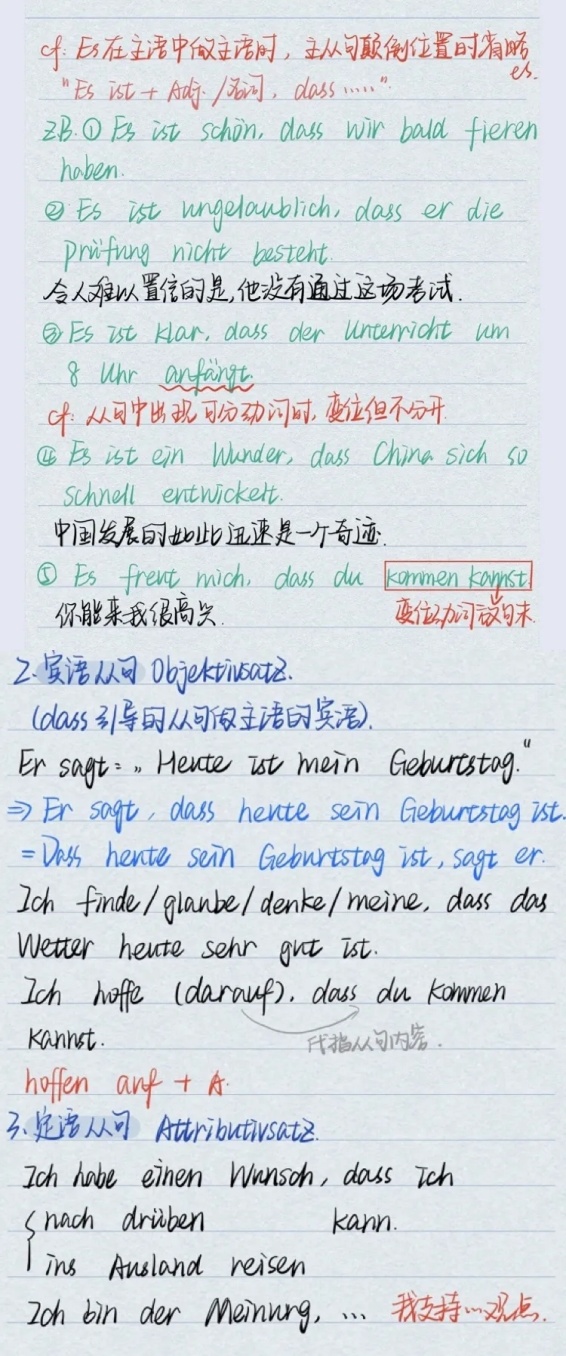 cf: Es在主语中做主语时，主从句颠倒位置时省略
es.
"Es ist + Adj. /名词, dass ....."
z.B. ① Es ist schön, dass wir bald fieren
haben.
② Es ist ungelaublich, dass er die
Prüfung nicht besteht.
令人难以置信的是,他没有通过这场考试.
③ Es ist klar, dass der Unterricht um
8 Uhr anfängt.
cf: 从句中出现可分动词时, 变位但不分开
④ Es ist ein Wunder, dass China sich so
schnell entwickelt.
中国发展的如此迅速是一个奇迹.
⑤ Es freut mich, dass du kommen kannst.
你能来我很高兴.
变位动词放句末.
2. 宾语从句 Objektivsatz.
(dass引导的从句做主语的宾语).
Er sagt: „Heute ist mein Geburtstag."
⇒ Er sagt, dass heute sein Geburtstag ist.
= Dass heute sein Geburtstag ist, sagt er.
Ich finde/glaube/denke/meine, dass das
Wetter heute sehr gut ist.
Ich hoffe (darauf), dass du kommen
kannst.
代指从句内容.
hoffen auf + A.
3. 定语从句 Attributivsatz.
Ich habe einen Wunsch, dass ich
nach drüben kann.
ins Ausland reisen
Ich bin der Meinung, ... 我支持…观点.